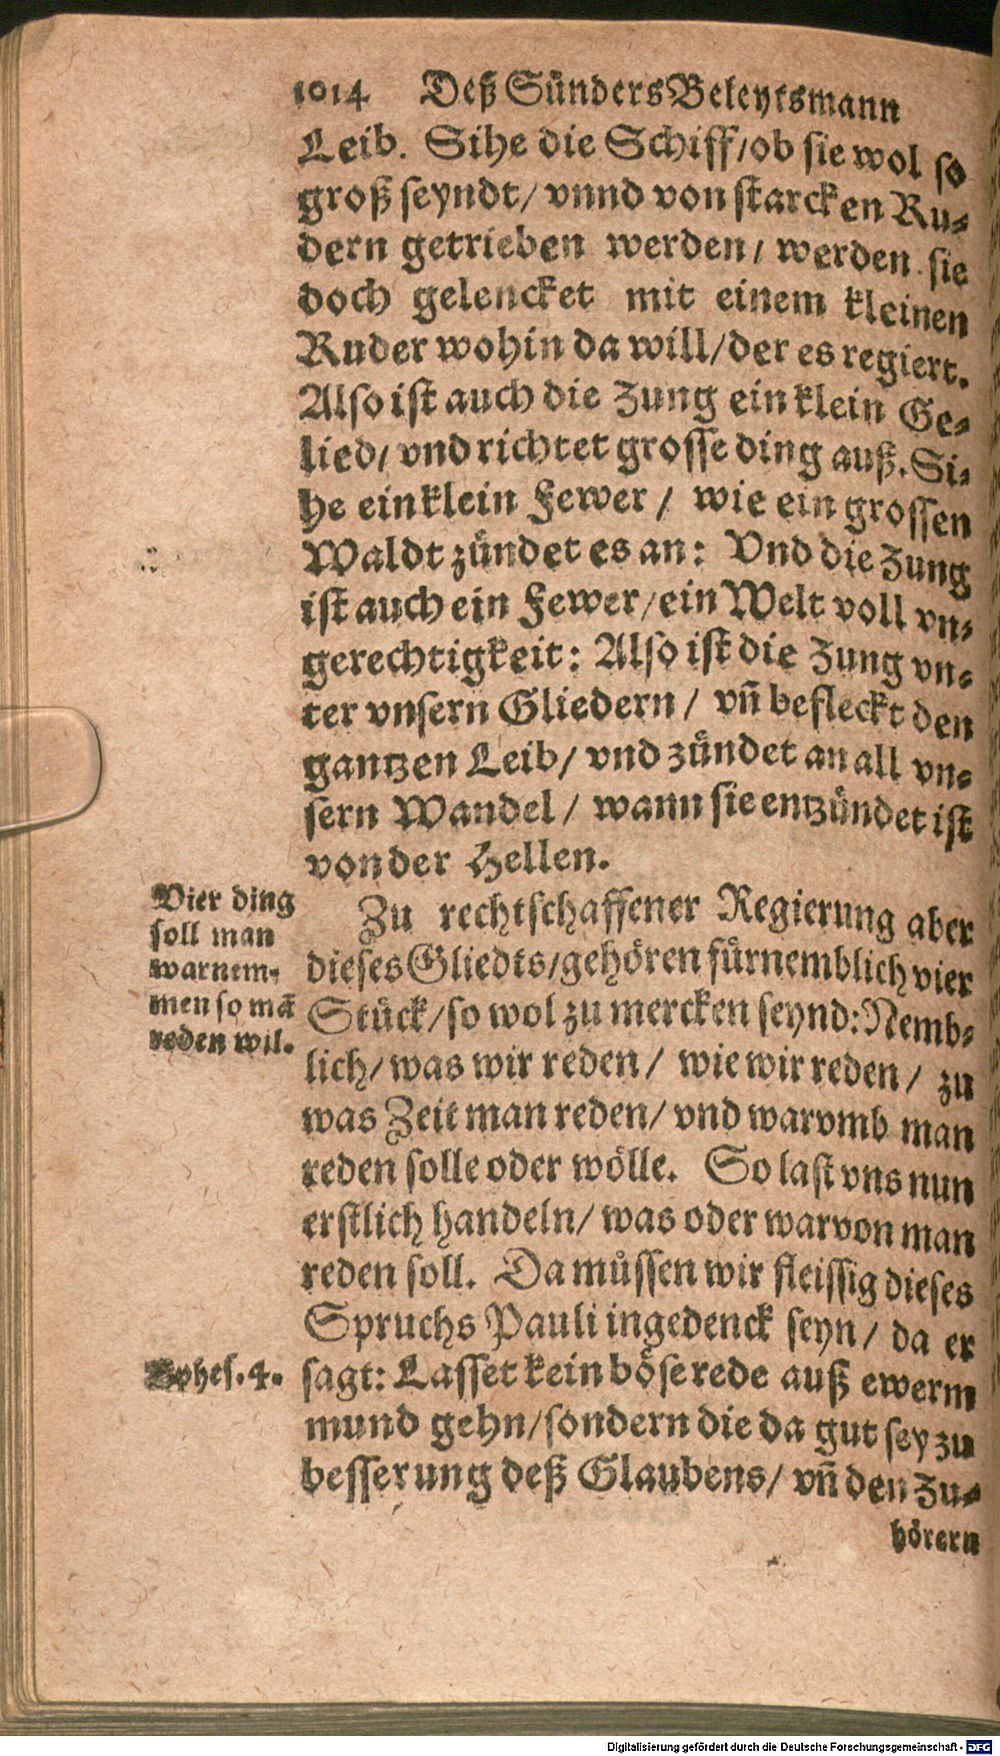 1014 Deß Sünders Beleytsmann
Leib. Sihe die Schiff/ob sie wol so
groß seyndt/ vnnd von starcken Ru-
dern getrieben werden/ werden sie
doch gelencket mit einem kleinen
Ruder wohin da will/der es regiert.
Also ist auch die Zung ein klein Ge-
lied/ vnd richtet grosse ding auß. Si-
he ein klein Fewer / wie ein grossen
Waldt zündet es an: Vnd die Zung
ist auch ein Fewer/ein Welt voll vn-
gerechtigkeit: Also ist die Zung vn-
ter vnsern Gliedern / vñ befleckt den
gantzen Leib/ vnd zündet an all vn-
sern Wandel / wann sie entzündet ist
von der Hellen.
Vier ding
soll man
warnem-
men so mã
reden wil.
Zu rechtschaffener Regierung aber
dieses Gliedts/gehören fürnemblich vier
Stück/so wol zu mercken seynd: Nemb-
lich/ was wir reden / wie wir reden / zu
was Zeit man reden/ vnd warvmb man
reden solle oder wölle. So last vns nun
erstlich handeln/ was oder warvon man
reden soll. Da müssen wir fleissig dieses
Spruchs Pauli ingedenck seyn / da er
Ephes. 4.
sagt: Lasset kein böse rede auß ewerm
mund gehn/sondern die da gut sey zu
besserung deß Glaubens/ vñ den Zu-
hörern
Digitalisierung gefördert durch die Deutsche Forschungsgemeinschaft - DFG